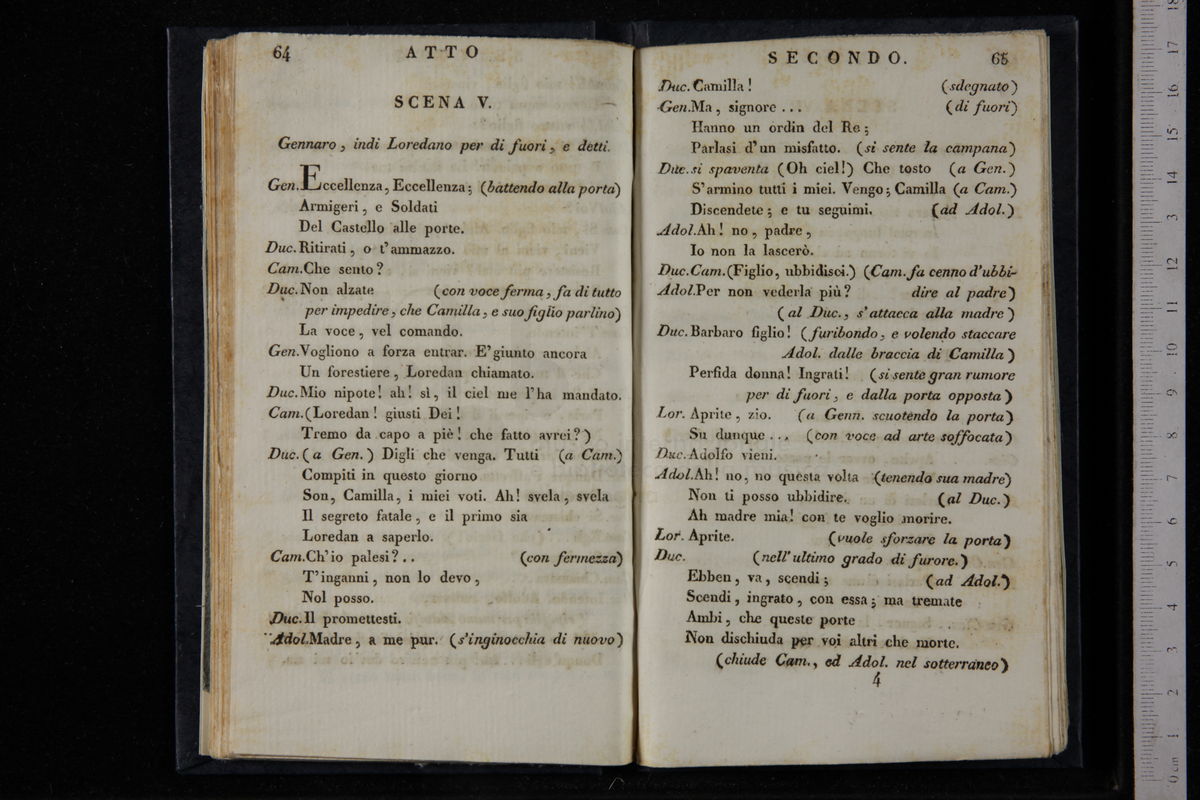 64 ATTO
SCENA V.
Gennaro, indi Loredano per di fuori, e detti.
Gen. Eccellenza, Eccellenza; (battendo alla porta)
Armigeri, e Soldati
Del Castello alle porte.
Duc. Ritirati, o t'ammazzo.
Cam. Che sento?
Duc. Non alzate (con voce ferma, fa di tutto
per impedire, che Camilla, e suo figlio parlino)
La voce, vel comando.
Gen. Vogliono a forza entrar. E'giunto ancora
Un forestiere, Loredan chiamato.
Duc. Mio nipote! ah! sì, il ciel me l'ha mandato.
Cam. (Loredan! giusti Dei!
Tremo da capo a piè! che fatto avrei?)
Duc. (a Gen.) Digli che venga. Tutti (a Cam.)
Compiti in questo giorno
Son, Camilla, i miei voti. Ah! svela, svela
Il segreto fatale, e il primo sia
Loredan a saperlo.
Cam. Ch'io palesi?.. (con fermezza)
T'inganni, non lo devo,
Nol posso.
Duc. Il promettesti.
Adol. Madre, a me pur. (s'inginocchia di nuovo)
SECONDO. 65
Duc. Camilla! (sdegnato)
Gen. Ma, signore ... (di fuori)
Hanno un ordin del Re;
Parlasi d'un misfatto. (si sente la campana)
Duc. si spaventa (Oh ciel!) Che tosto (a Gen.)
S'armino tutti i miei. Vengo; Camilla (a Cam.)
Discendete; e tu seguimi. (ad Adol.)
Adol. Ah! no, padre,
Io non la lascerò.
Duc. Cam. (Figlio, ubbidisci.) (Cam. fa cenno d'ubbi-
Adol. Per non vederla più? dire al padre)
(al Duc., s'attacca alla madre)
Duc. Barbaro figlio! (furibondo, e volendo staccare
Adol. dalle braccia di Camilla)
Perfida donna! Ingrati! (si sente gran rumore
per di fuori, e dalla porta opposta)
Lor. Aprite, zio. (a Genn. scuotendo la porta)
Su dunque ... (con voce ad arte soffocata)
Duc. Adolfo vieni.
Adol. Ah! no, no questa volta (tenendo sua madre)
Non ti posso ubbidire. (al Duc.)
Ah madre mia! con te voglio morire.
Lor. Aprite. (vuole sforzare la porta)
Duc. (nell'ultimo grado di furore.)
Ebben, va, scendi; (ad Adol.)
Scendi, ingrato, con essa; ma tremate
Ambi, che queste porte
Non dischiuda per voi altri che morte.
(chiude Cam., ed Adol. nel sotterraneo)
4
0 cm 1 2 3 4 5 6 7 8 9 10 11 12 13 14 15 16 17 18